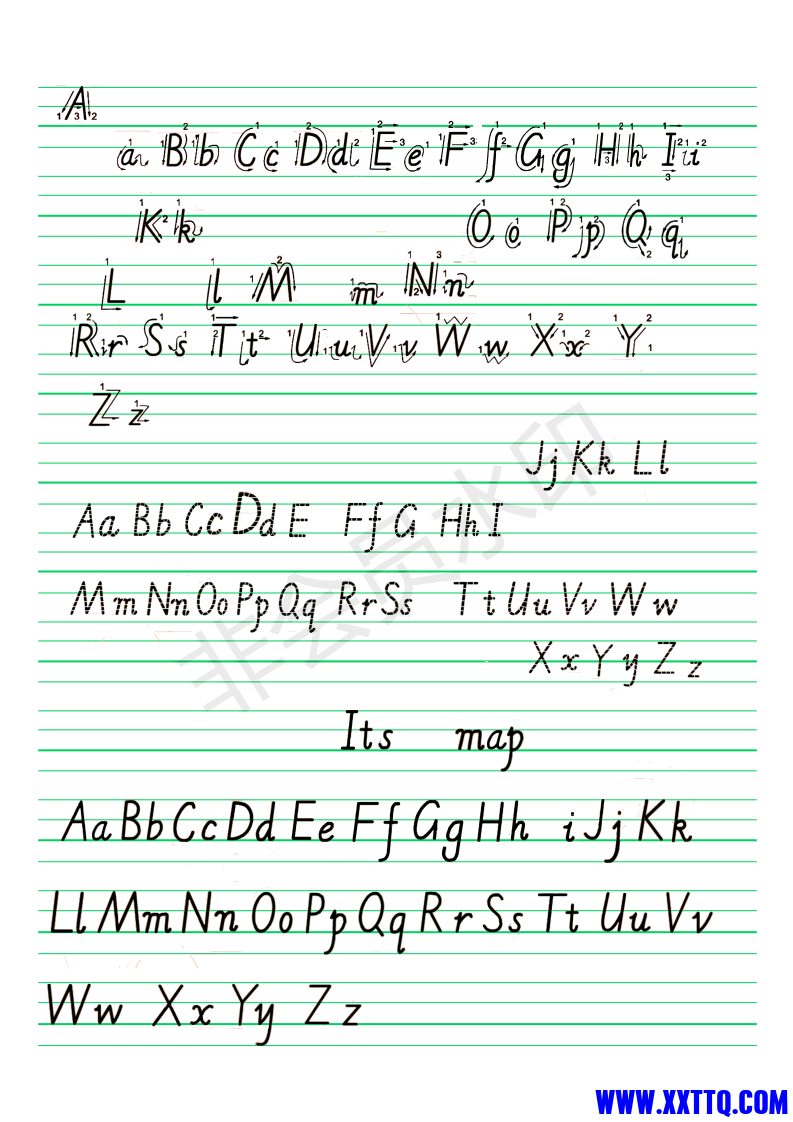 A
a B b C c D d E e F f G g H h I i
K k O o P p Q q
L l M m N n
R r S s T t U u V v W w X x Y
Z z
Jj Kk Ll
Aa Bb Cc Dd E Ff G Hh I
Mm Nn Oo Pp Qq Rr Ss Tt Uu Vv Ww
Xx Yy Zz
Its map
Aa Bb Cc Dd Ee Ff Gg Hh i Jj Kk
Ll Mm Nn Oo Pp Qq Rr Ss Tt Uu Vv
Ww Xx Yy Zz
非会员水印
WWW.XXTTQ.COM